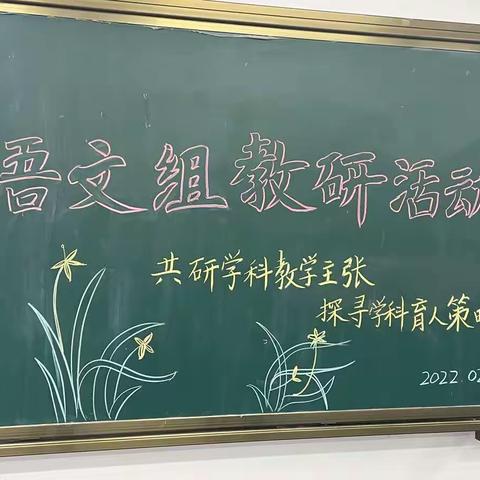 语文组教研活动
共研学科教学主张
探寻学科育人策
2022.02